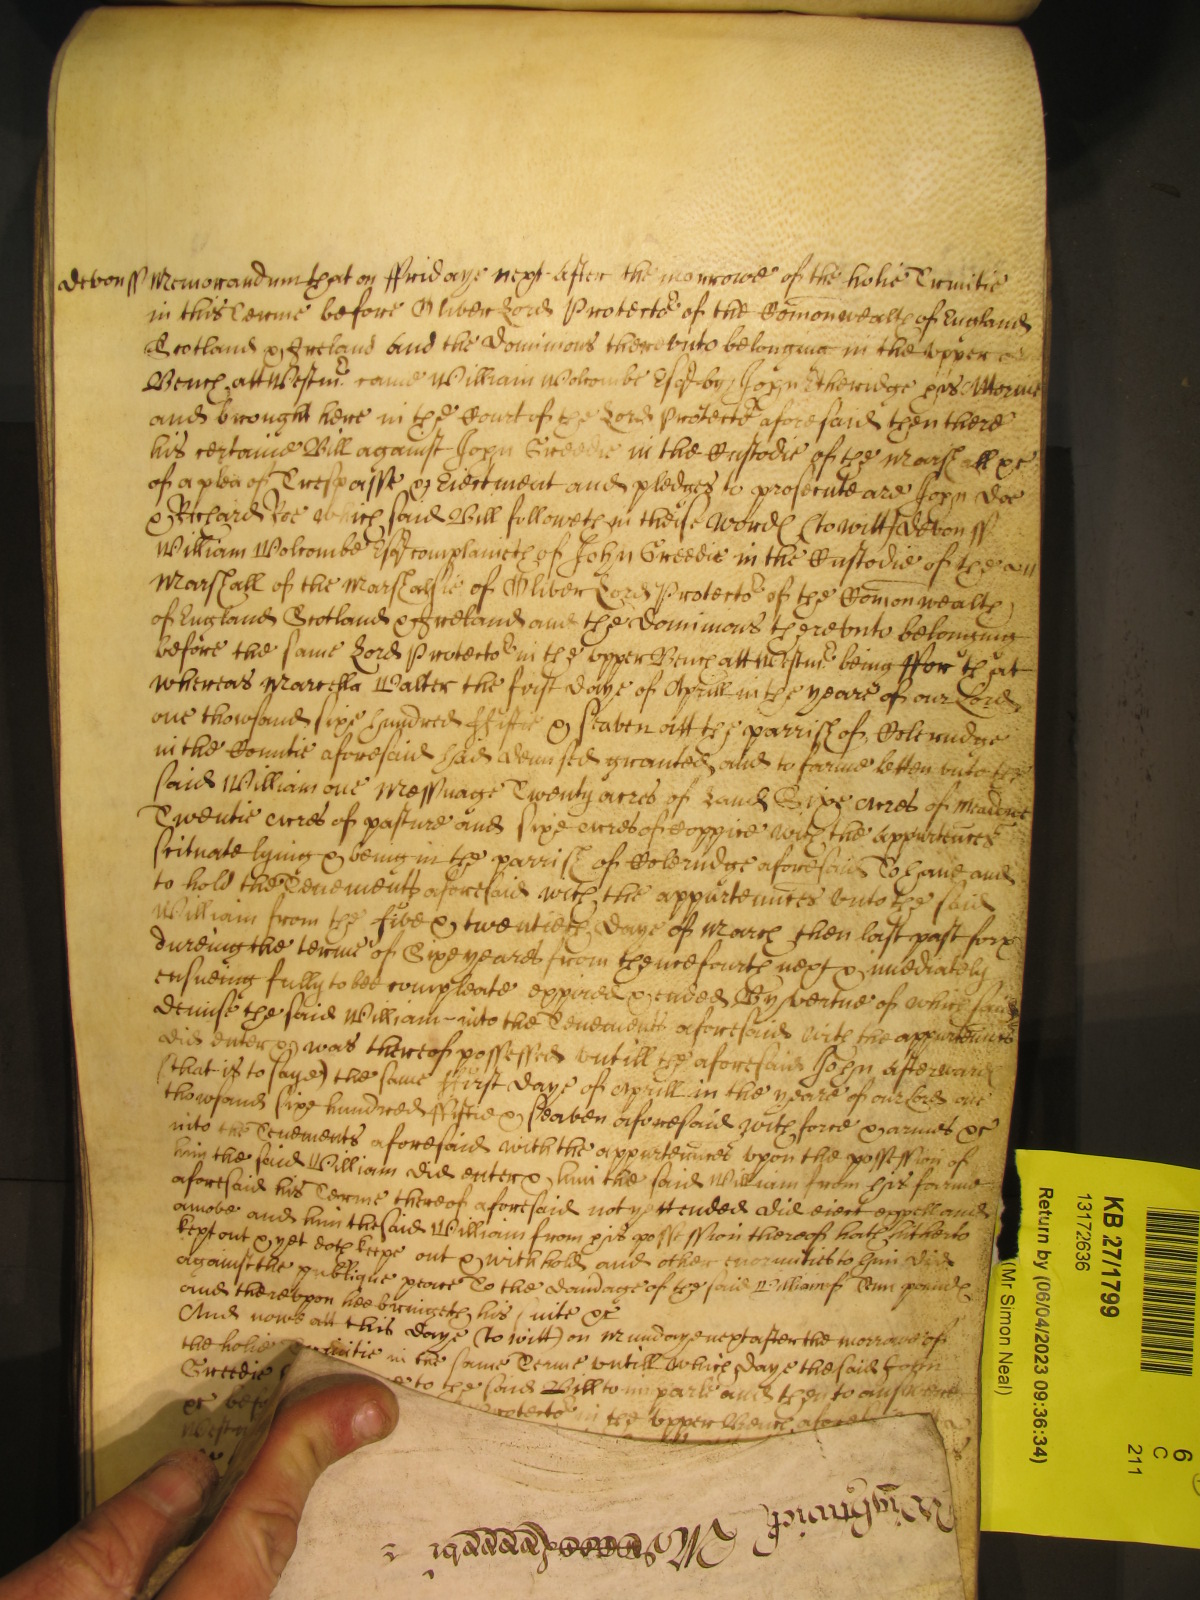 Devonss Memorandum that on ffridaye next after the morrowe of the holie Trinitie
in this Terme before Oliver Lord Protector of the Comonwealth of England
Scotland & Ireland and the Dominions therevnto belonging in the vpper
Bench att Westmr came William Wolcombe Esqr by John Etheridge his Attorne
and brought here in the Court of the Lord Protector aforesaid then there
his certaine Bill against John Greedie in the Custodie of the Marshall &c
of a plea of Trespasse & Eiectment and pledges to prosecute are John Doe
& Richard Roe which said Bill followeth in theise Words (to witt) Devonss
William Wolcombe Esqr complaineth of John Greedie in the Custodie of the
Marshall of the Marshalsie of Oliver Lord Protector of the Comonwealth
of England Scotland & Ireland and the Dominions therevnto belonging
before the same Lord Protector in the vpper Bench att Westmr being ffor that
whereas Marcella Walter the first daye of Aprill in the yeare of our Lord
one thowsand sixe hundred ffiftie & seaven att the parrish of Colerudge
in the Countie aforesaid had demised graunted and to farme letten vnto the
said William one Messuage Twenty acres of Land Sixe acres of meadowe
Twentie acres of pasture and sixe acres of coppice with the appurtences
scituate lying & being in the parrish of Colerudge aforesaid To have and
to hold the Tenements aforesaid with the appurtences vnto the said
William from the five & twentieth daye of March then last past for &
dureing the terme of Sixe yeares from thenceforth next & imediately
ensueing fully to bee compleate expired & ended By vertue of which said
demise the said William into the Tenements aforesaid with the appurtences
did enter & was thereof possessed vntill the aforesaid John afterward
(that is to saye) the same ffirst daye of Aprill in the yeare of our Lord one
thowsand sixe hundred ffiftie & seaven aforesaid with force & armes &c
into the Tenements aforesaid with the appurtences vpon the possession of
him the said William did enter & him the said William from his farme
aforesaid his Terme thereof aforesaid not yett ended did eiect expell and
amove and him the said William from his possession thereof hath hitherto
kept out & yet doth keepe out & withhold and other enormities to him did
against the publique peace To the damage of the said William of Tenn pounds
and therevpon hee bringeth his suite &c
And nowe att this daye (to witt) on Mundaye next after the morrowe of
the holie Trinitie in the same Terme vntill which daye the said John
Greedie to the said Bill to imparle and then to answere
&c before Protector in the vpper Bench
Westmr
Wightwick
KB 27/1799
13172636
Return by (06/04/2023 09:36:34)
(Mr Simon Neal)
6
C
211